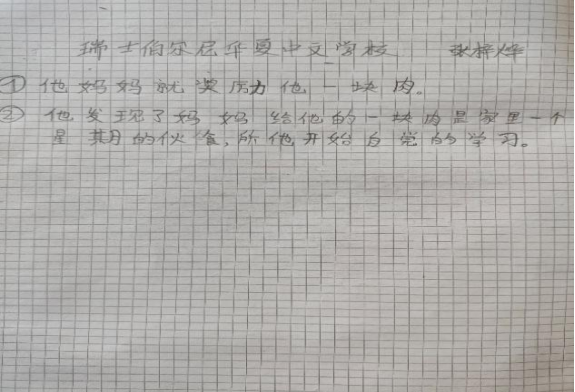 瑞士伯尔尼华夏中文学校 张梓烨
① 他妈妈就奖历力他一块肉。
② 他发现了妈妈给他的一块肉是家里一个
星期的伙食,所他开始自觉的学习。